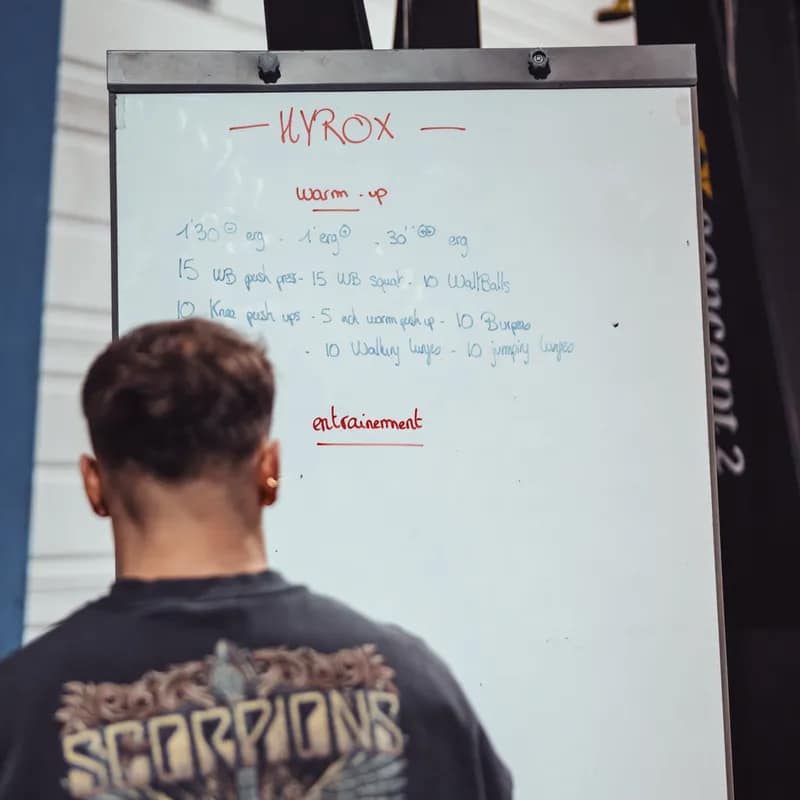 — HYROX —
warm-up
1'30 ⊖ erg - 1' erg ⊕ - 30'' ⊕⊕ erg
15 WB push press - 15 WB squat - 10 WallBalls
10 Knee push ups - 5 push up - 10 Burpees
- 10 Walking lunges - 10 jumping lunges
entrainement
concept 2
SCORPIONS